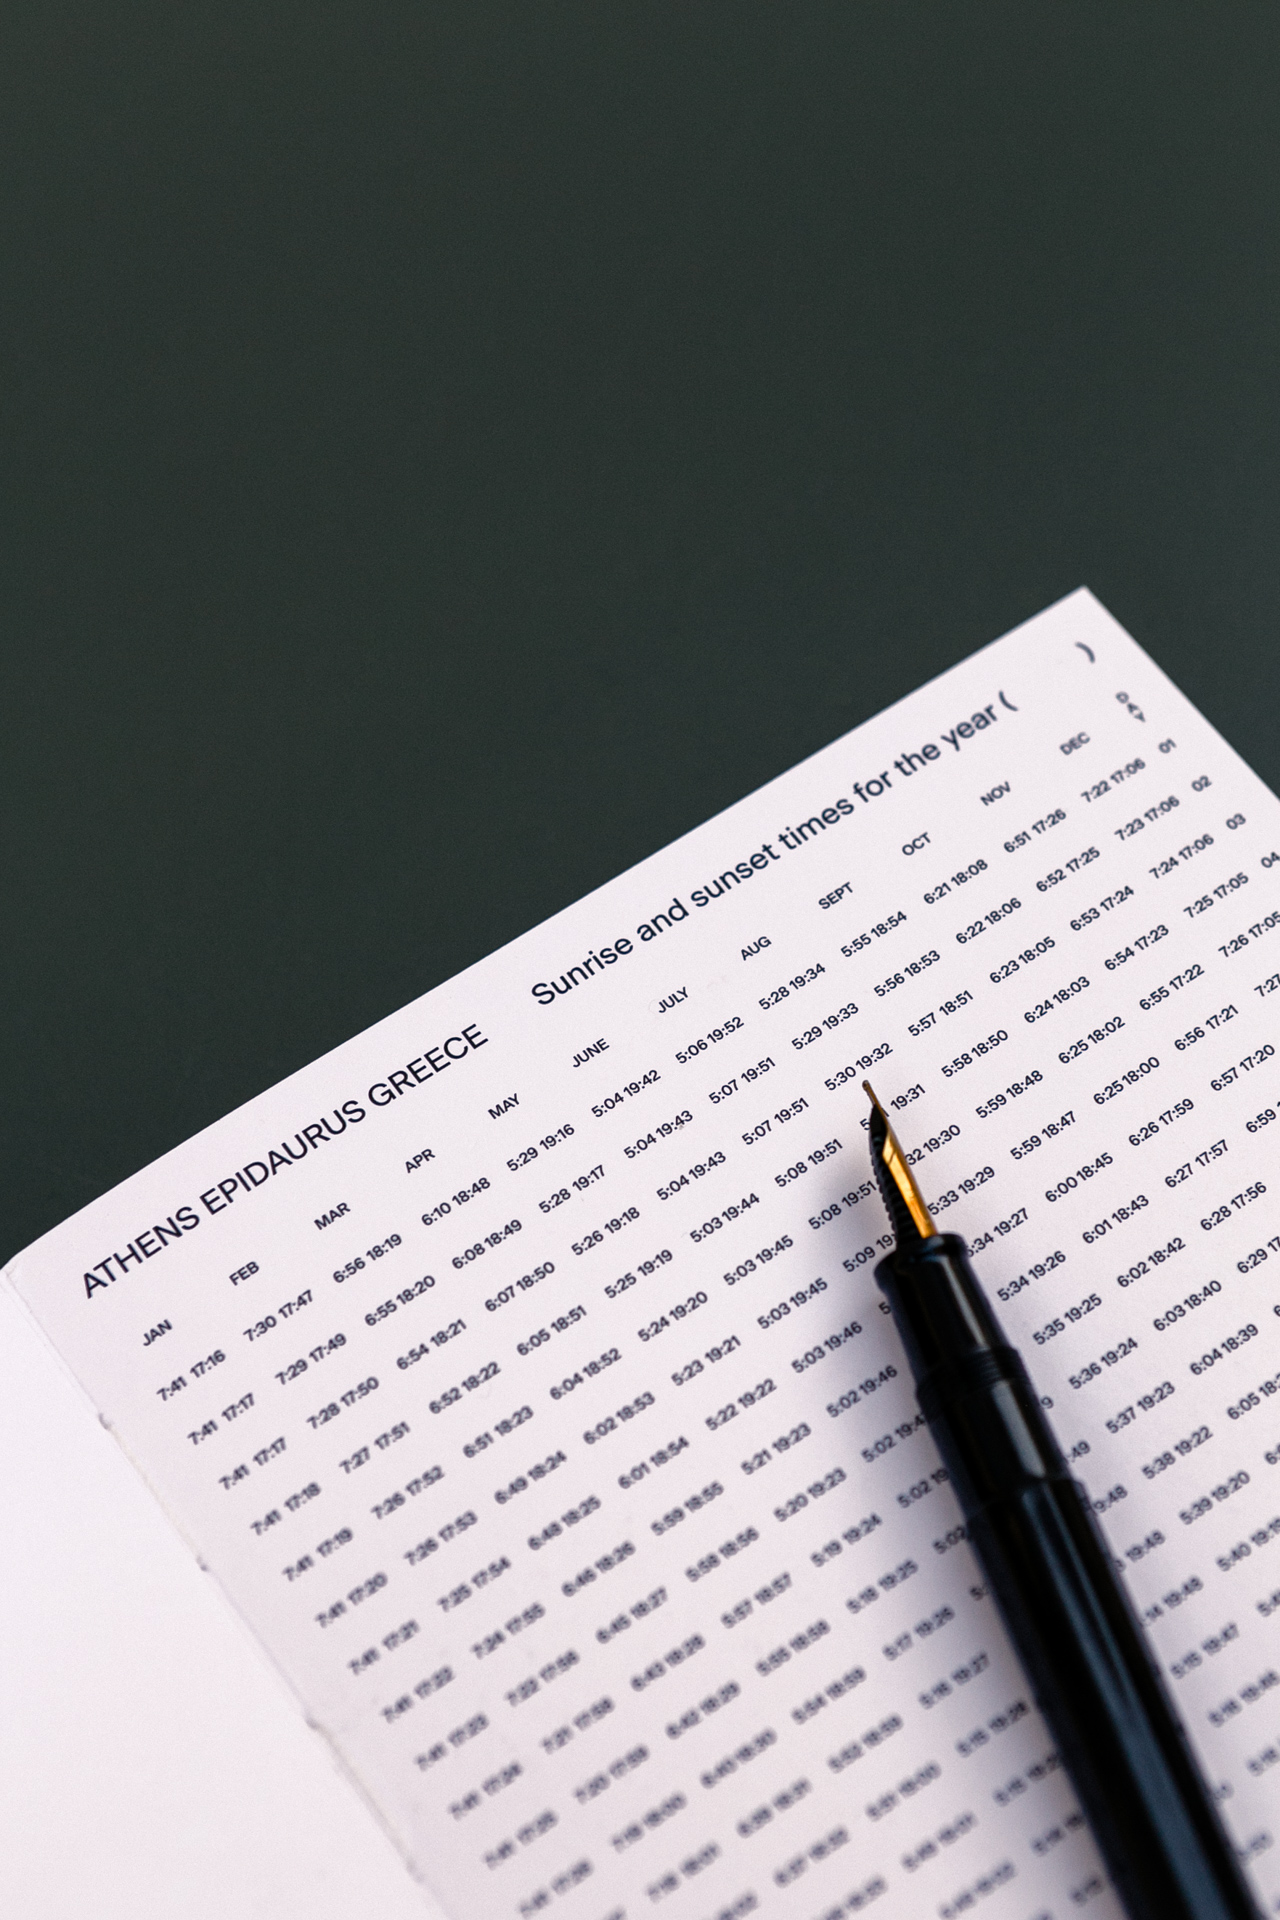 ATHENS EPIDAURUS GREECE Sunrise and sunset times for the year ( )
JAN FEB MAR APR MAY JUNE JULY AUG SEPT OCT NOV DEC DAY
7:41 17:16 7:30 17:47 6:56 18:19 6:10 18:48 5:29 19:16 5:04 19:42 5:06 19:52 5:28 19:34 5:55 18:54 6:21 18:08 6:51 17:26 7:22 17:06 01
7:41 17:17 7:29 17:49 6:55 18:20 6:08 18:49 5:28 19:17 5:04 19:43 5:07 19:51 5:29 19:33 5:56 18:53 6:22 18:06 6:52 17:25 7:23 17:06 02
7:41 17:17 7:28 17:50 6:54 18:21 6:07 18:50 5:26 19:18 5:04 19:43 5:07 19:51 5:30 19:32 5:57 18:51 6:23 18:05 6:53 17:24 7:24 17:06 03
7:41 17:18 7:27 17:51 6:52 18:22 6:05 18:51 5:25 19:19 5:03 19:44 5:08 19:51 19:31 5:58 18:50 6:24 18:03 6:54 17:23 7:25 17:05 04
7:41 17:19 7:26 17:52 6:51 18:23 6:04 18:52 5:24 19:20 5:03 19:45 5:08 19:51 19:30 5:59 18:48 6:25 18:02 6:55 17:22 7:26 17:05
7:41 17:20 7:26 17:53 6:49 18:24 6:02 18:53 5:23 19:21 5:03 19:45 5:09 5:33 19:29 5:59 18:47 6:25 18:00 6:56 17:21
7:41 17:21 7:25 17:54 6:48 18:25 6:01 18:54 5:22 19:22 5:03 19:46 19:27 6:00 18:45 6:26 17:59 6:57 17:20
7:41 17:22 7:24 17:55 6:46 18:26 5:59 18:55 5:21 19:23 5:02 19:46 5:34 19:26 6:01 18:43 6:27 17:57 6:59
7:41 17:23 7:22 17:56 6:45 18:27 5:58 18:56 5:20 19:23 5:02 5:35 19:25 6:02 18:42 6:28 17:56
7:41 17:24 7:21 17:58 6:43 18:28 5:57 18:57 5:19 19:24 5:02 5:36 19:24 6:03 18:40 6:29
7:41 17:25 7:20 17:59 6:42 18:29 5:55 18:58 5:18 19:25 5:02 5:37 19:23 6:04 18:39
7:41 17:26 7:19 18:00 6:40 18:30 5:54 18:59 5:17 19:26 5:38 19:22 6:05
7:18 18:01 6:39 18:31 5:52 18:59 5:16 19:27 5:39 19:20